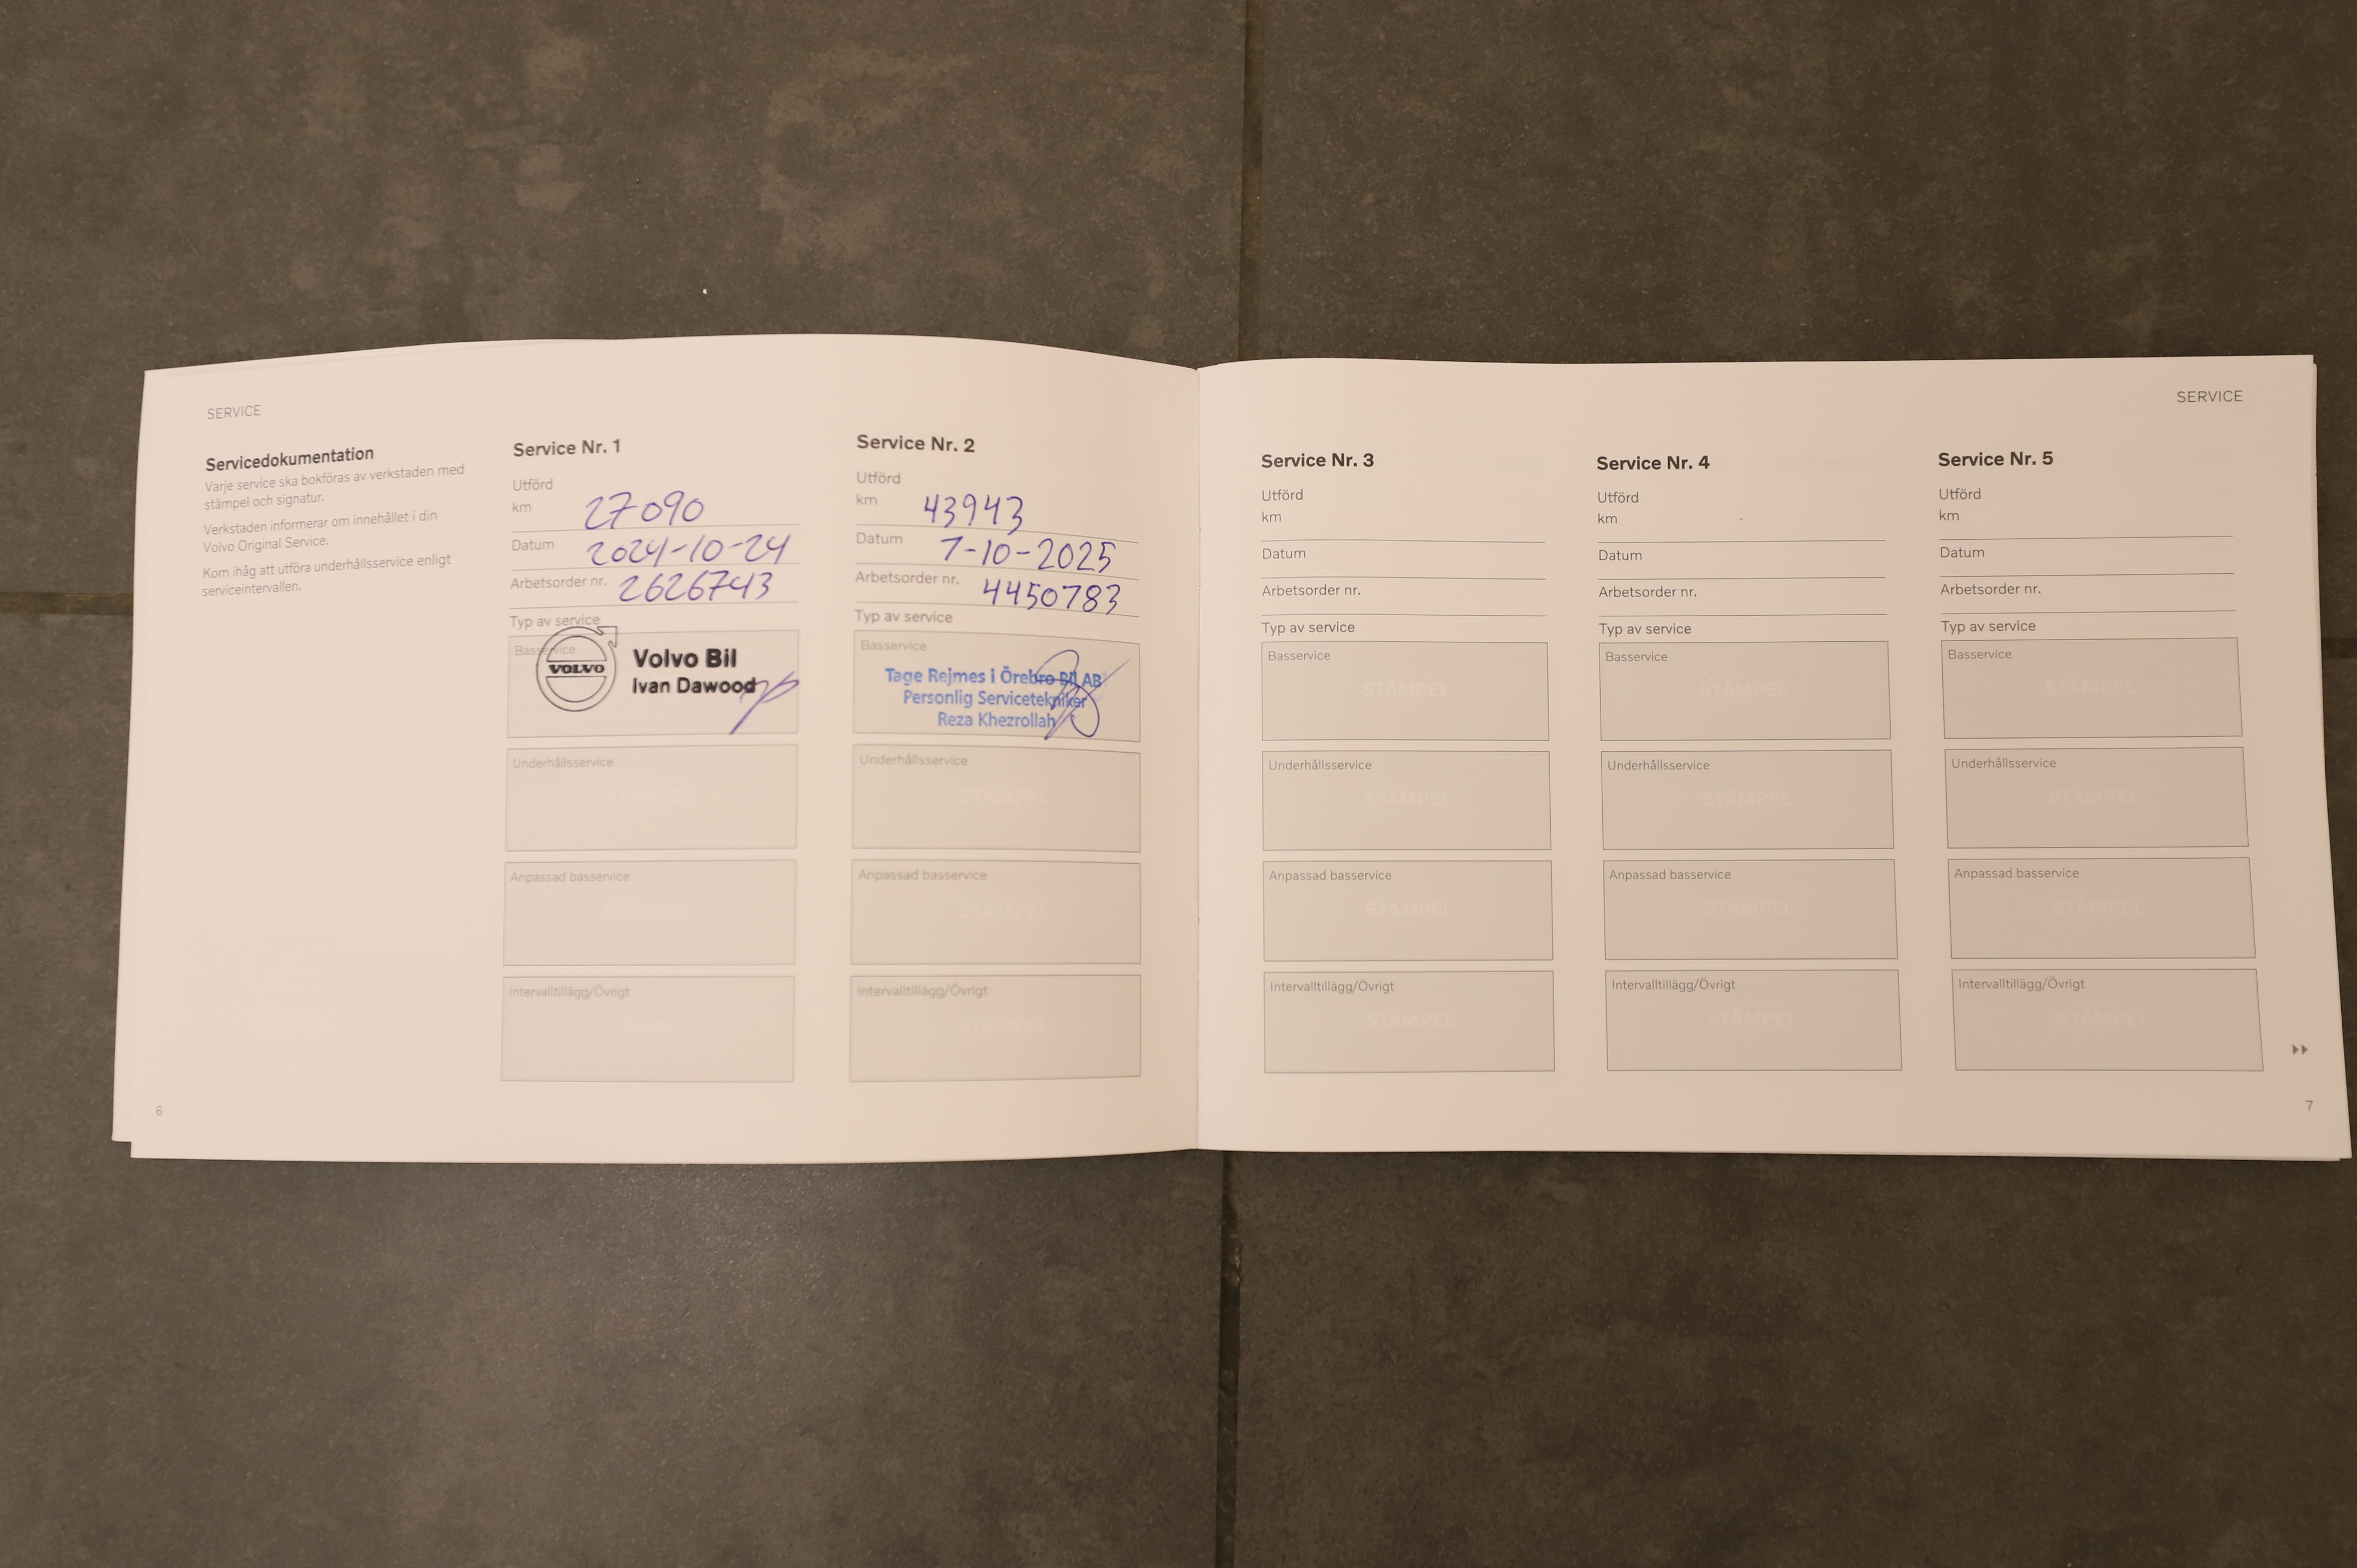 SERVICE
Servicedokumentation
Varje service ska bokföras av verkstaden med
stämpel och signatur.
Verkstaden informerar om innehållet i din
Volvo Original Service.
Kom ihåg att utföra underhållsservice enligt
serviceintervallen.
Service Nr. 1
Utförd
km 27090
Datum 2024-10-24
Arbetsorder nr. 2626743
Typ av service
Basservice
VOLVO
Volvo Bil
Ivan Dawood
Underhållsservice
STÄMPEL
Anpassad basservice
STÄMPEL
Intervalltillägg/Övrigt
STÄMPEL
Service Nr. 2
Utförd
km 43943
Datum 7-10-2025
Arbetsorder nr. 4450783
Typ av service
Basservice
Tage Rejmes i Örebro Bil AB
Personlig Servicetekniker
Reza Khezrollah
Underhållsservice
STÄMPEL
Anpassad basservice
STÄMPEL
Intervalltillägg/Övrigt
STÄMPEL
6
SERVICE
Service Nr. 3
Utförd
km
Datum
Arbetsorder nr.
Typ av service
Basservice
STÄMPEL
Underhållsservice
STÄMPEL
Anpassad basservice
STÄMPEL
Intervalltillägg/Övrigt
STÄMPEL
Service Nr. 4
Utförd
km
Datum
Arbetsorder nr.
Typ av service
Basservice
STÄMPEL
Underhållsservice
STÄMPEL
Anpassad basservice
STÄMPEL
Intervalltillägg/Övrigt
STÄMPEL
Service Nr. 5
Utförd
km
Datum
Arbetsorder nr.
Typ av service
Basservice
STÄMPEL
Underhållsservice
STÄMPEL
Anpassad basservice
STÄMPEL
Intervalltillägg/Övrigt
STÄMPEL
7